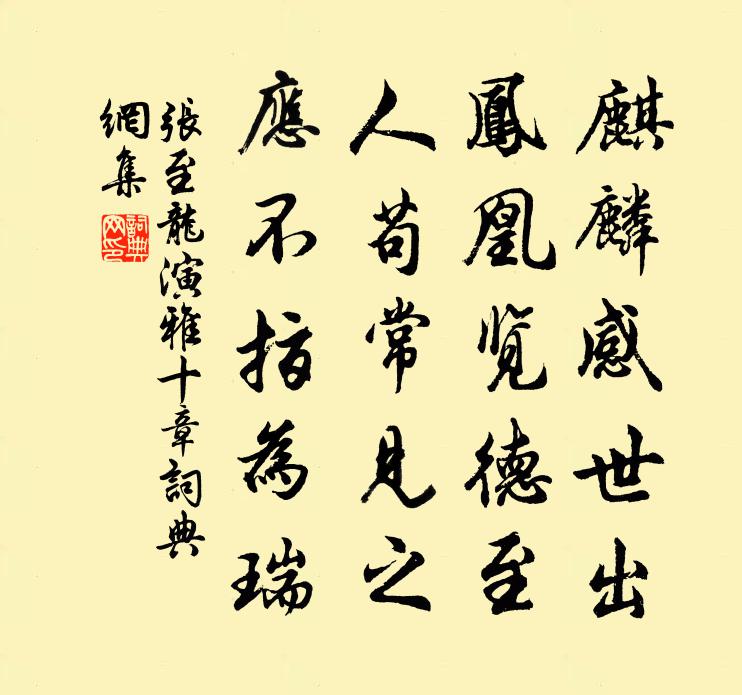 麒麟感世出
鳳凰览德至
人苟常見之
應不指為瑞
張至龍演雅十章詞典
網集
詞典
网印